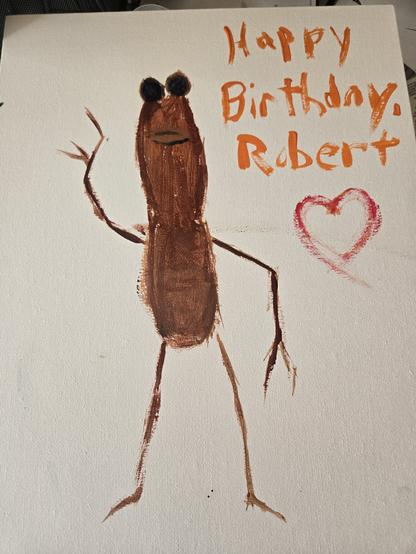 Happy
Birthday,
Robert